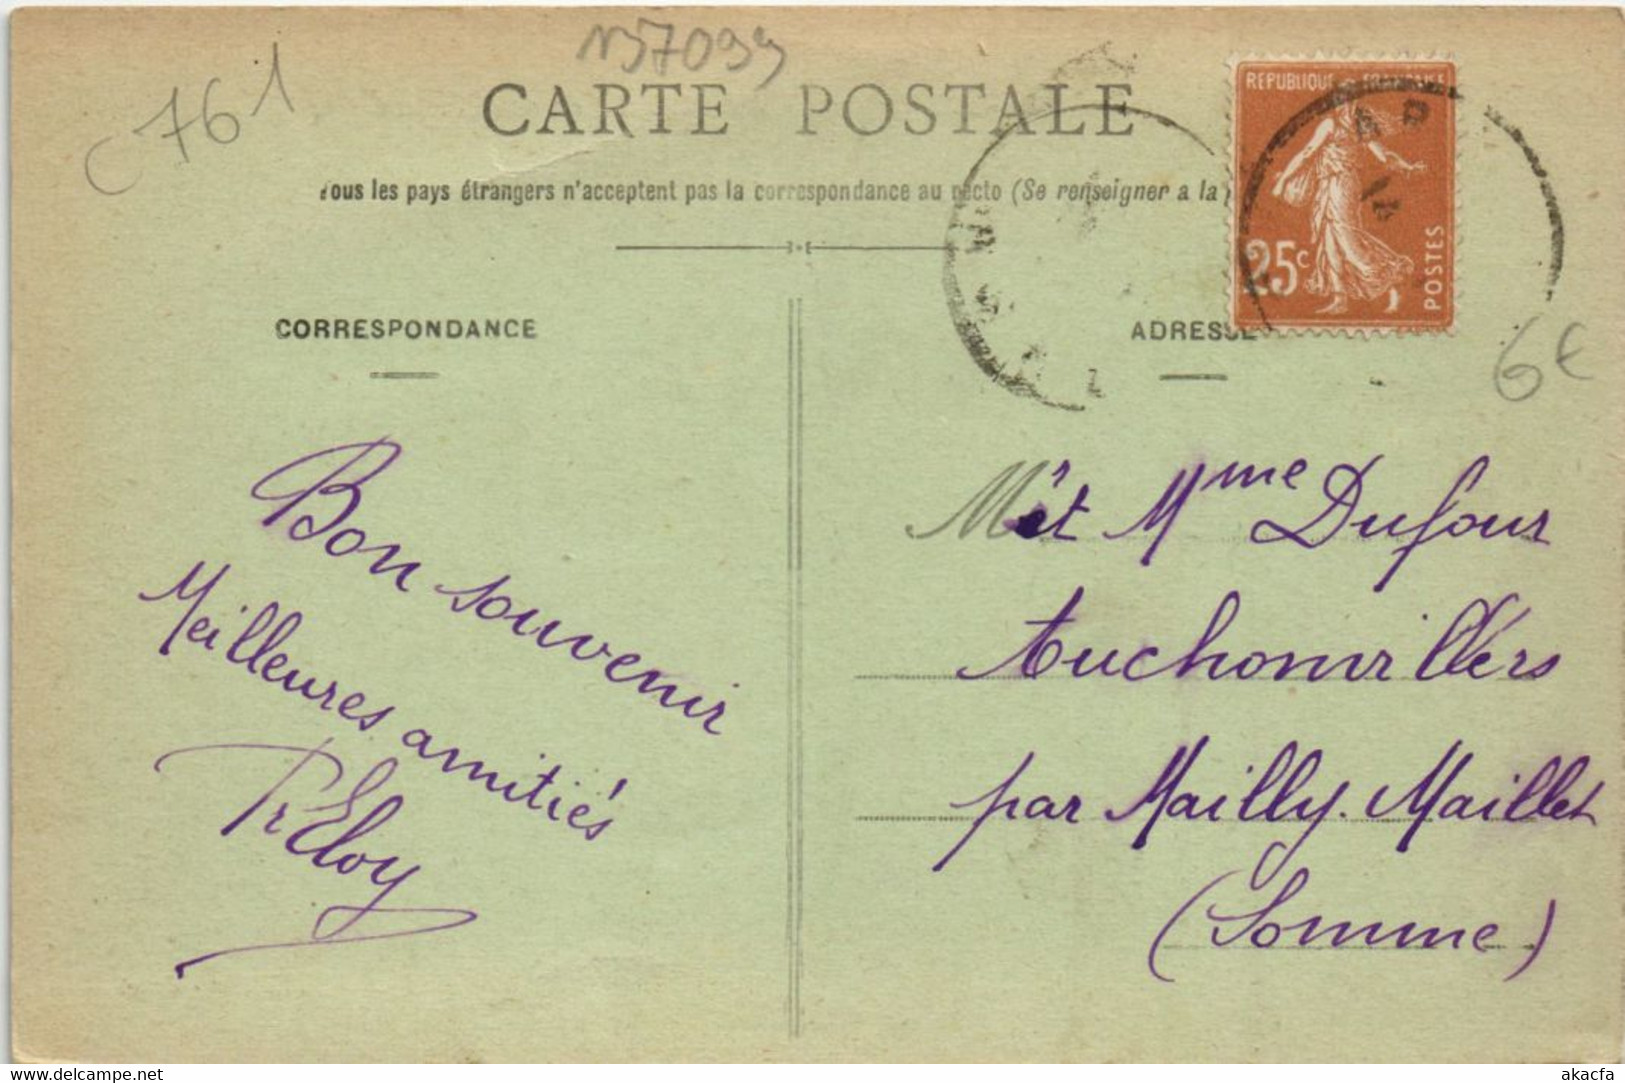 C 761
N37099
CARTE POSTALE
Tous les pays étrangers n'acceptent pas la correspondance au recto (Se renseigner a la
REPUBLIQUE FRANCAISE
25c
POSTES
CORRESPONDANCE
ADRESSE
6€
Bon souvenir
Meilleures amitiés
Eloy
Mr et Mme Dufour
Auchonvillers
par Mailly-Maillet
(Somme)
www.delcampe.net
akacfa